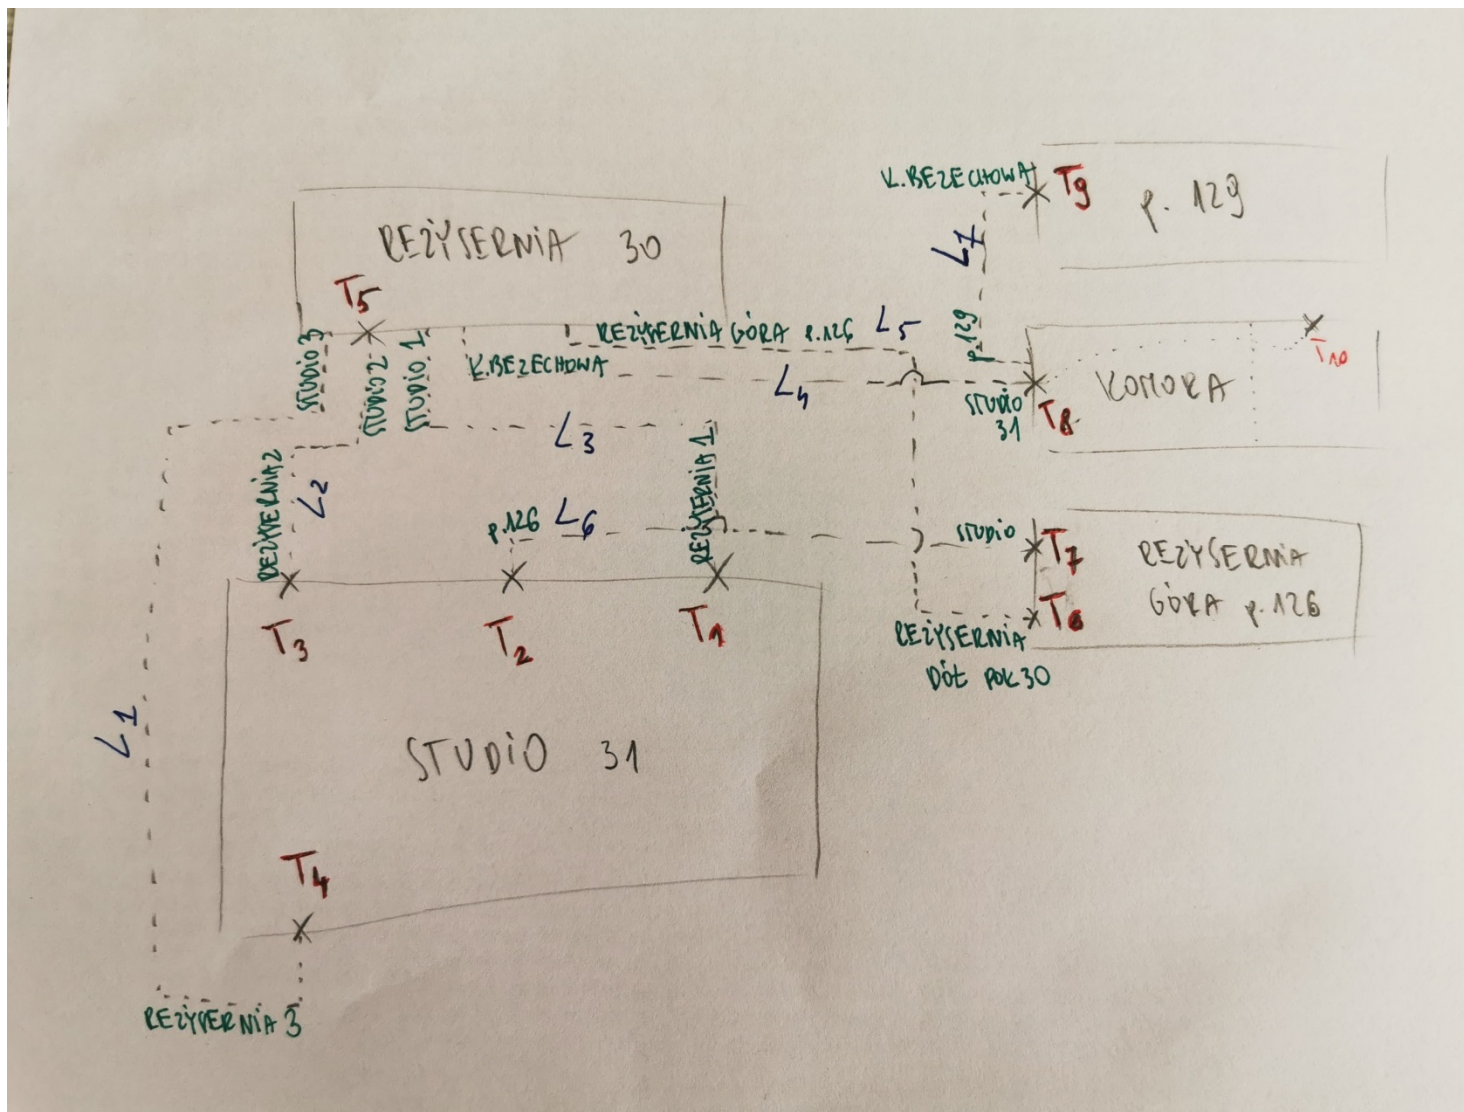 K.BEZECHOWA
T9
p. 129
REŻYSERNIA 30
L7
T5
REŻYSERNIA GÓRA p.126
L5
STUDIO 3
STUDIO 2
STUDIO 1
K.BEZECHOWA
p.129
T10
L4
KOMORA
STUDIO
31
T8
L3
REŻYSERNIA 2
L2
REŻYSERNIA 1
p.126
L6
STUDIO
T7
REŻYSERNIA
GÓRA p.126
T6
T3
T2
T1
REŻYSERNIA
DÓŁ POK 30
L1
STUDIO 31
T4
REŻYSERNIA 3